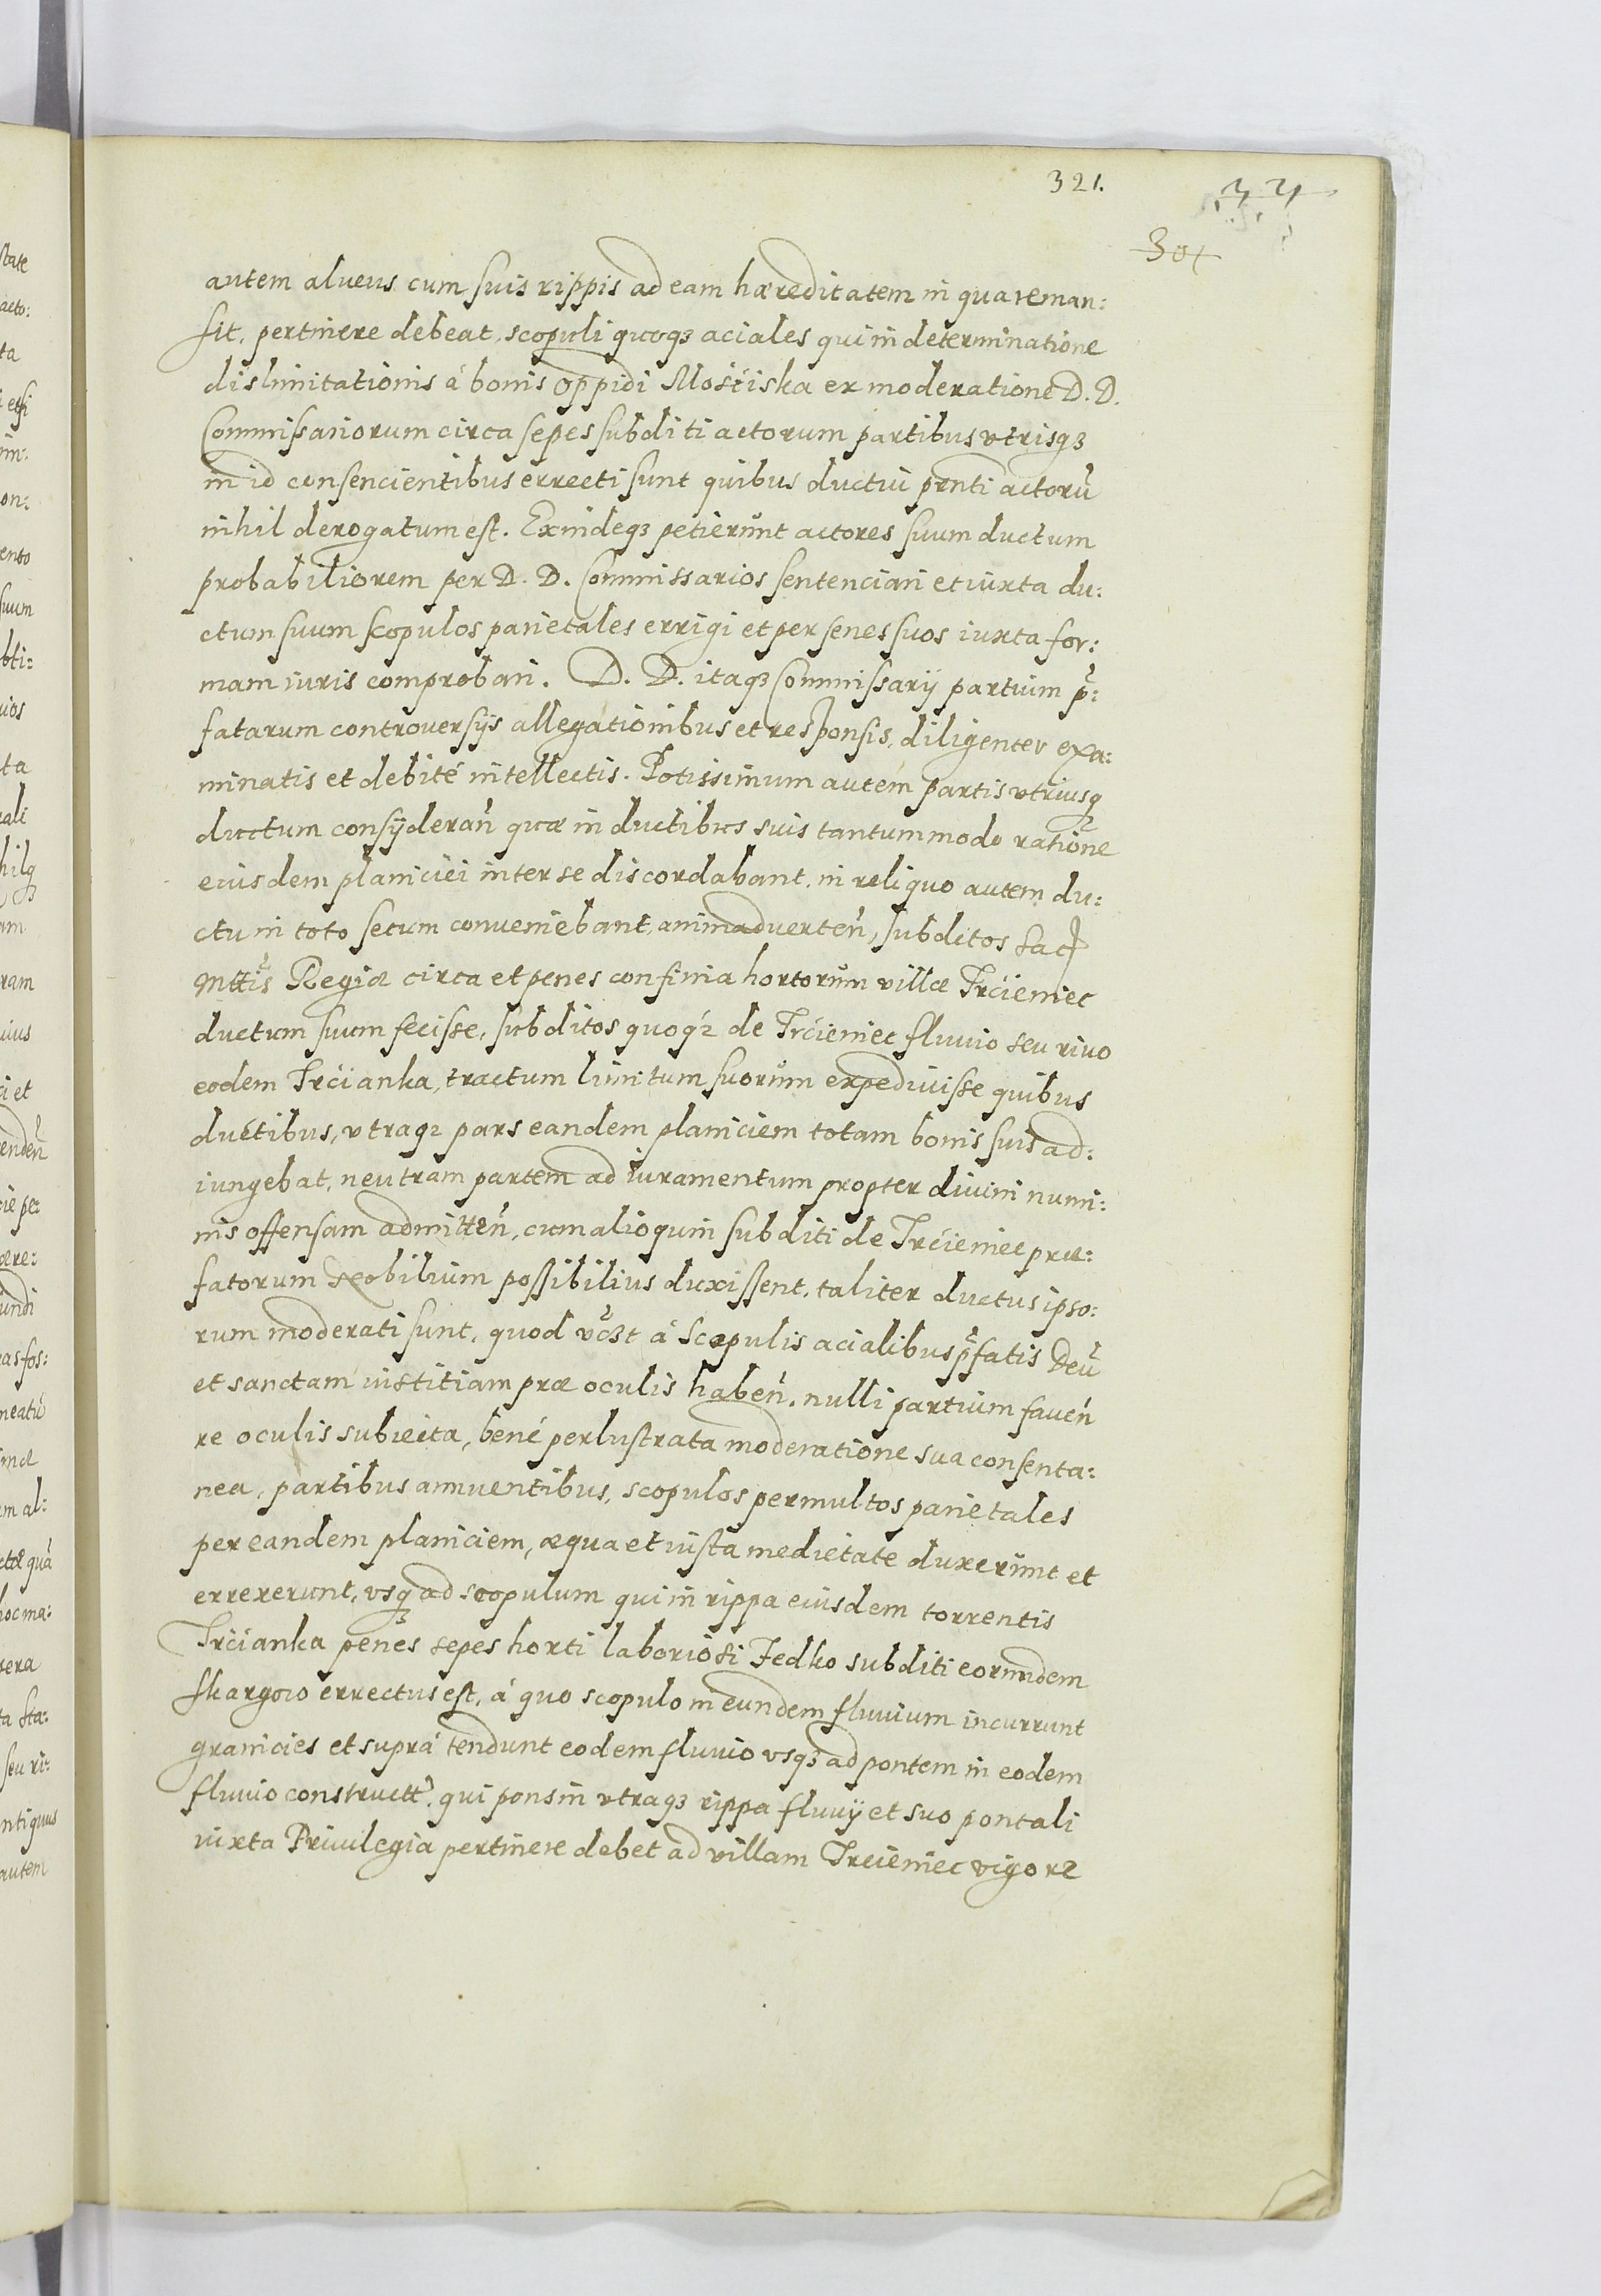 321.
301
autem alueus cum suis rippis ad eam hæreditatem in qua reman:
sit, pertinere debeat, scopuli quoqȝ aciales qui in determinatione
dislimitationis á bonis oppidi Mosciska ex moderatione D. D.
Commissariorum circa sepes subditi actorum partibus vtrisqȝ
in id consencientibus errecti sunt quibus ductui pnti actorũ
nihil derogatum est. Exindeqȝ petierunt actores suum ductum
probabiliorem per D. D. Commissarios sentenciari et iuxta du:
ctum suum scopulos parietales errigi et per senes suos iuxta for:
mam iuris comprobari. D. D. itaqȝ Commissarij partium p̃:
fatarum controuersijs allegationibus et responsis, diligenter exa:
minatis et debité intellectis. Potissimum autem partis vtriusqȝ
ductum consyderañ quæ in ductibus suis tantummodo ratione
eiusdem planiciei inter se discordabant, in reliquo autem du:
ctu in toto secum conueniebant, animaduerteñ, subditos Sac
Mttis Regiæ circa et penes confinia hortorum villæ Trcieniec
ductum suum fecisse, subditos quoqȝ de Trcieniec fluuio seu riuo
eodem Trcianka, tractum limitum suorum expediuisse quibus
ductibus, vtraqȝ pars eandem planiciem totam bonis suis ad:
iungebat, neutram partem ad iuramentum propter diuini numi:
nis offensam admitteñ, cum alioquin subditi de Trcieniec præ:
fatorum Nobilium possibilius duxissent, taliter ductus ipso:
rum moderati sunt, quod vcȝt á Scopulis acialibus p̃fatis Deũ
et sanctam iustitiam præ oculis habeñ, nulli partium faueñ
re oculis subiecta, bené perlustrata moderatione sua consenta:
nea, partibus annuentibus, scopulos permultos parietales
per eandem planiciem, æqua et iusta medietate duxerunt et
errexerunt, vsqȝ ad scopulum qui in rippa eiusdem torrentis
Trcianka penes sepes horti laboriosi Fedko subditi eorundem
Skargow errectus est, á quo scopulo in eundem fluuium incurrunt
granicies et suprá tendunt eodem fluuio vsqȝ ad pontem in eodem
fluuio constructt̃, qui pons in vtraqȝ rippa fluuij et suo pontali
iuxta Priuilegia pertinere debet ad villam Trcieniec vigore